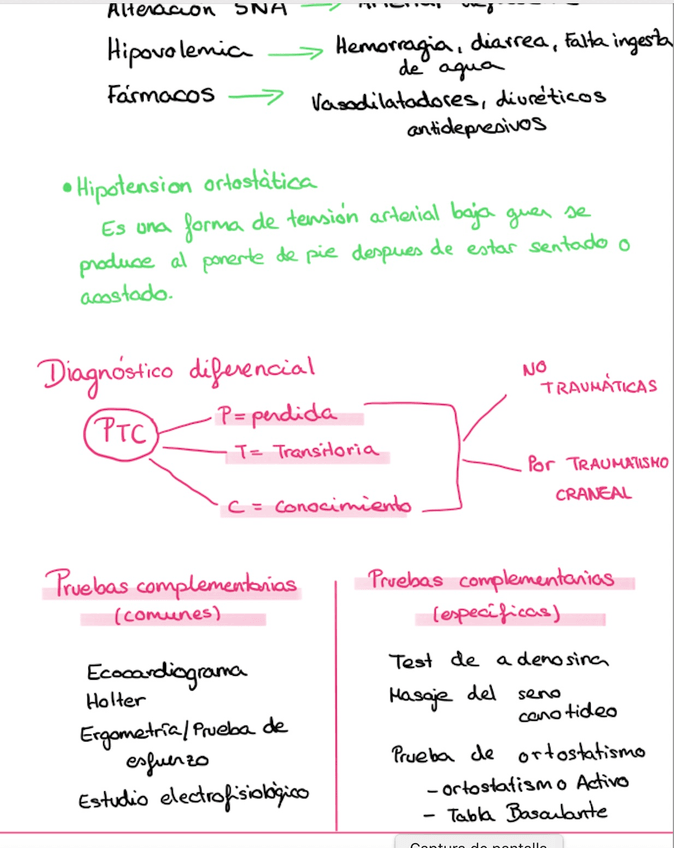 Alteración SNA →
Hipovolemia → Hemorragia, diarrea, Falta ingesta
de agua
Fármacos → Vasodilatadores, diuréticos
antidepresivos
• Hipotension ortostática
Es una forma de tensión arterial baja quen se
produce al ponerte de pie despues de estar sentado o
acostado.
Diagnóstico diferencial
PTC
P= perdida
T= Transitoria
C = Conocimiento
NO
TRAUMÁTICAS
Por TRAUMATISMO
CRANEAL
Pruebas complementarias
(comunes)
Ecocardiograma
Holter
Ergometría/Prueba de
esfuerzo
Estudio electrofisiológico
Pruebas complementarias
(específicas)
Test de adenosina
Masaje del seno
carotideo
Prueba de ortostatismo
- ortostatismo Activo
- Tabla Basculante